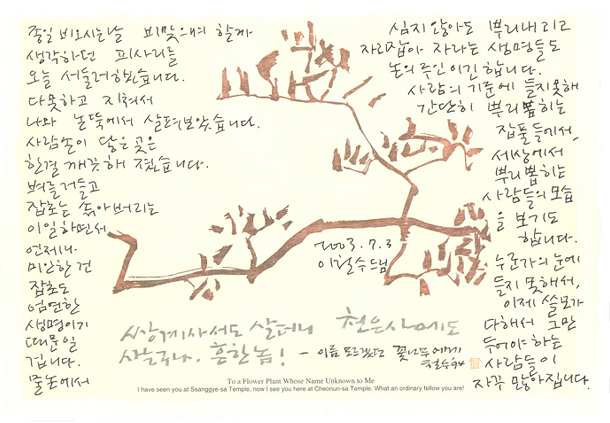 종일 비오시는 날 비맞으며 할까
생각하던 피사리를
오늘 서둘러 했습니다.
다 못하고 지쳐서
나와 논둑에서 살펴보았습니다.
사람손이 닿은 곳은
한결 깨끗해 졌습니다.
벼를 거들고
잡초는 솎아버리는
이일 하면서
언제나
미안한 건
잡초도
엄연한
생명이기
때문일
겁니다.
줄 논에서
심지 않아도 뿌리내리고
자리잡아 자라는 생명들도
논의 주인이긴 합니다.
사람의 기준에 들지못해
간단히 뿌리뽑히는
잡풀들에서,
세상에서
뿌리뽑히는
사람들의 모습
을 보기도
합니다.
누군가의 눈에
들지 못해서,
이제 쓸모가
다해서 그만
두어야 하는
사람들이
자꾸 많아집니다.
2003.7.3
이철수드림
쌍계사서도 살더니 천은사에도
사는구나. 흔한놈! - 이름 모르겠던 꽃나무에게
철수 94
To a Flower Plant Whose Name Unknown to Me
I have seen you at Ssanggye-sa Temple, now I see you here at Cheonun-sa Temple. What an ordinary fellow you are!